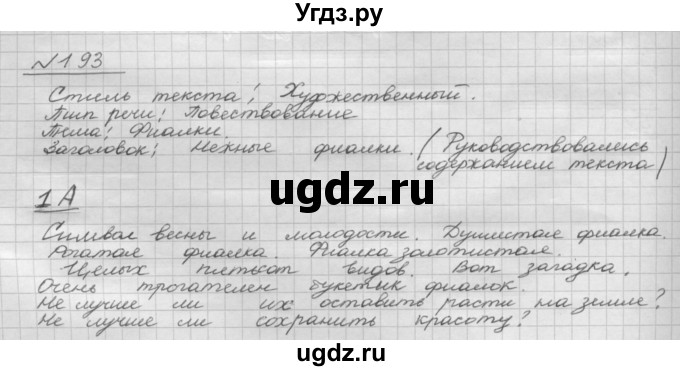 Угдз.ру
№193
Стиль текста: Художественный.
Тип речи: Повествование
Тема: Фиалки.
Заголовок: Нежные фиалки. (Руководствовались
содержанием текста)
1А
Символ весны и молодости. Душистая фиалка.
Рогатая фиалка. Фиалка золотистая.
Целых пятьсот видов. Вот загадка.
Очень трогателен букетик фиалок.
Не лучше ли их оставить расти на земле?
Не лучше ли сохранить красоту?
ugdz.ru
ugdz.ru
ugdz.ru